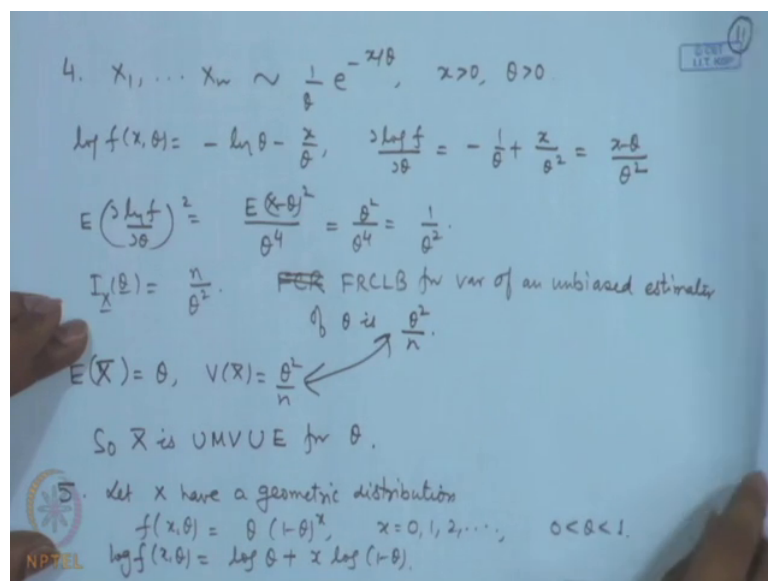 11
© CET
I.I.T. KGP
4. X₁, ... Xₙ ~ 1/θ e^{-x/θ}, x>0, θ>0
log f(x,θ) = - ln θ - x/θ, ∂log f/∂θ = - 1/θ + x/θ² = x-θ/θ²
E(∂log f/∂θ)² = E(X-θ)²/θ⁴ = θ²/θ⁴ = 1/θ².
I_X(θ) = n/θ². FRCLB for var of an unbiased estimator
of θ is θ²/n.
E(X̄) = θ, V(X̄) = θ²/n
So X̄ is UMVUE for θ.
5. Let X have a geometric distribution
f(x,θ) = θ (1-θ)^x, x=0,1,2,..., 0<θ<1.
log f(x,θ) = log θ + x log (1-θ).
NPTEL